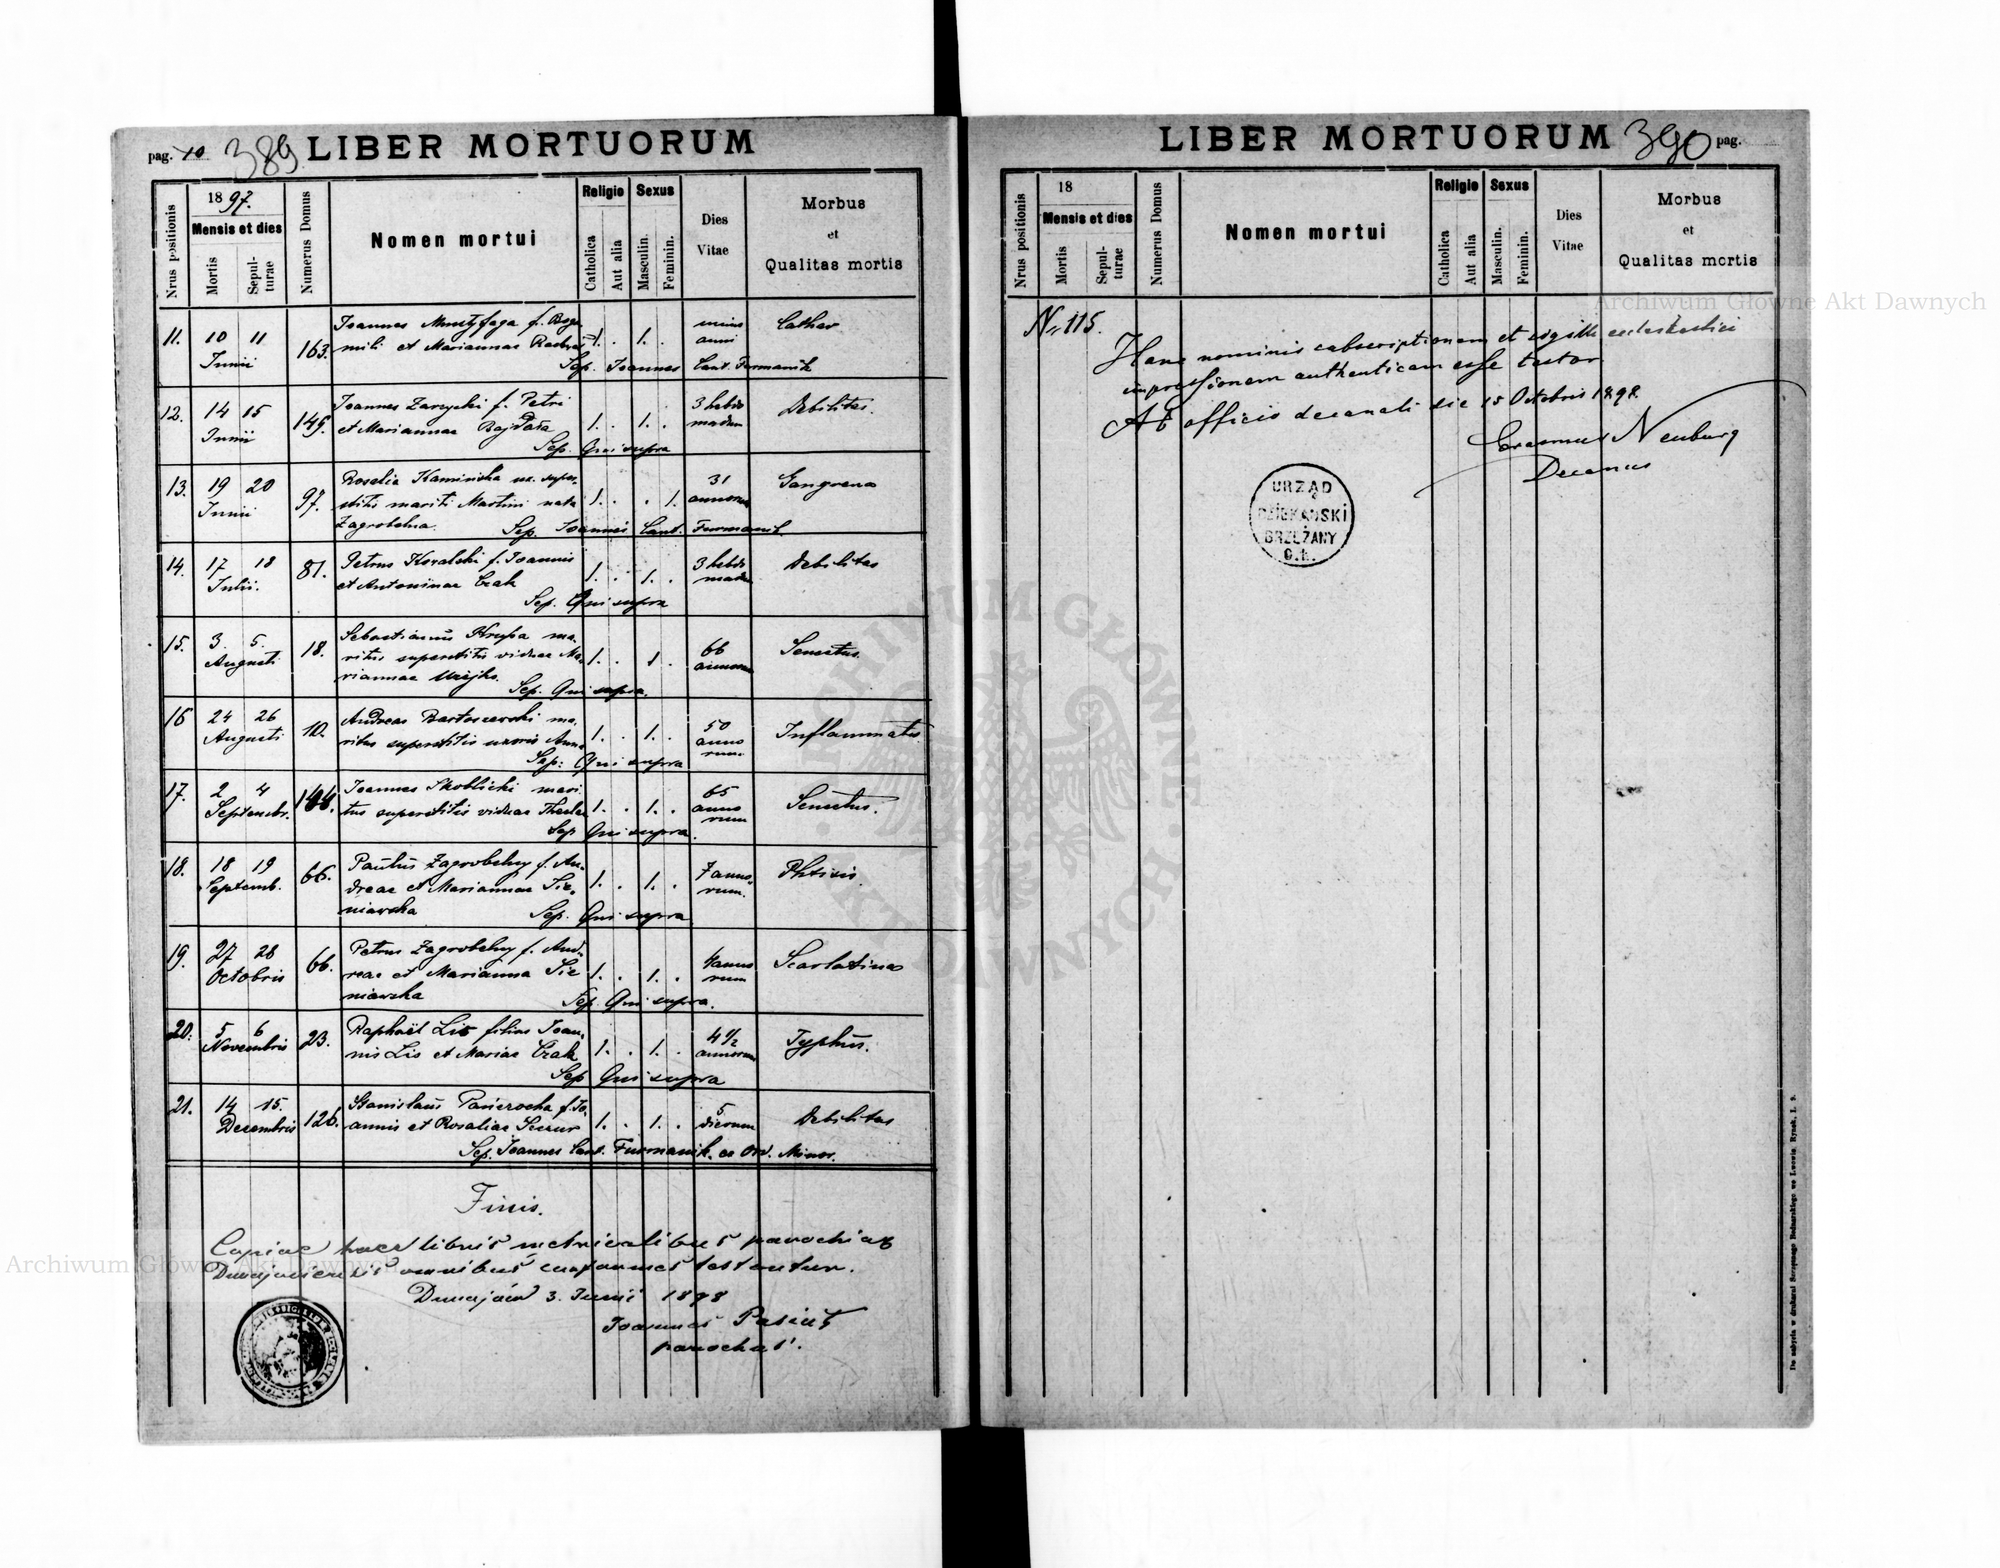 pag. 10 389 LIBER MORTUORUM
Nrus positionis
1897.
Mensis et dies
Mortis
Sepulturae
Numerus Domus
Nomen mortui
Religio
Catholica
Aut alia
Sexus
Masculin.
Feminin.
Dies
Vitae
Morbus
et
Qualitas mortis
11. 10 11 Joannes f. Bogu
Junii 163. mili et Mariannae 1. 1. anni
Sep. Joannes Cant. Furmanik
12. 14 15 Joannes Zarzycki f. Petri 3 hebdo Debilitas.
Junii 149. et Mariannae 1. . 1. . madum
Sep. Qui supra
13. 19 20 Rosalia Kamińska ux. super Gangrena
Junii 97. stitis mariti Martini nata 1. . . 1. 31 annorum
Zagrobelna. Sep. Joannes Cant. Furmanik.
14. 17 18 81. Petrus Kowalski f. Joannis 3 hebdo Debilitas
Julii. et Antoninae Czak 1. . 1. . madum
Sep. Qui supra
15. 3. 5. 18. Sebastianus Hryba ma- 66 Senectus.
Augusti ritus superstitis viduae Ma- 1. . 1 . annorum
riannae
Sep. Qui supra.
16 24 26 10. Andreas Bartoszewski ma- 50 Inflammatio
Augusti ritus superstitis uxoris Annae 1. . 1. . anno
Sep: Qui supra rum.
17. 2 4 144. Joannes Skoblicki mari- 65 Senectus.
Septembr. tus superstitis viduae Theclae 1. . 1. . anno
Sep Qui supra. rum
18. 18 19 66. Paulus Zagrobelny f. An- 7 anno- Phtisis.
Septemb. dreae et Mariannae Sie- 1. . 1. . rum.
niawska Sep. Qui supra
19. 27 28 66. Petrus Zagrobelny f. And- 4 anno Scarlatina
Octobris reae et Marianna Sie 1. . 1. . rum
niawska Sep. Qui supra.
20. 5 6 23. Raphaël Lis filius Joan- 4 1/2 Typhus.
Novembris nis Lis et Mariae Czak 1. . 1. . annorum
Sep Qui supra
21. 14 15. 126. Stanislaus f. Jo- 5 Debilitas
Decembris annis et Rosaliae 1. . 1. . dierum
Sep. Joannes Cant. Furmanik. ex Ord. Minor.
Finis.
Copiae haec libris metricalibus parochiae
Dunajoviensis omnibus conformes testantur.
Dunajów 3. Junii 1898
Joannes
parochus.
LIBER MORTUORUM 390 pag.
Nrus positionis
18
Mensis et dies
Mortis
Sepulturae
Numerus Domus
Nomen mortui
Religio
Catholica
Aut alia
Sexus
Masculin.
Feminin.
Dies
Vitae
Morbus
et
Qualitas mortis
Nr 115.
Hanc nominis subscriptionem et sigilli ecclesiastici
impressionem authenticam esse testor
Ab officio decanali die 15 Octobris 1898.
Erasmus Neuburg
Decanus
URZĄD
DZIEKAŃSKI
BRZEŻANY
Archiwum Główne Akt Dawnych
Archiwum Główne Akt Dawnych
ARCHIWUM GŁÓWNE AKT DAWNYCH